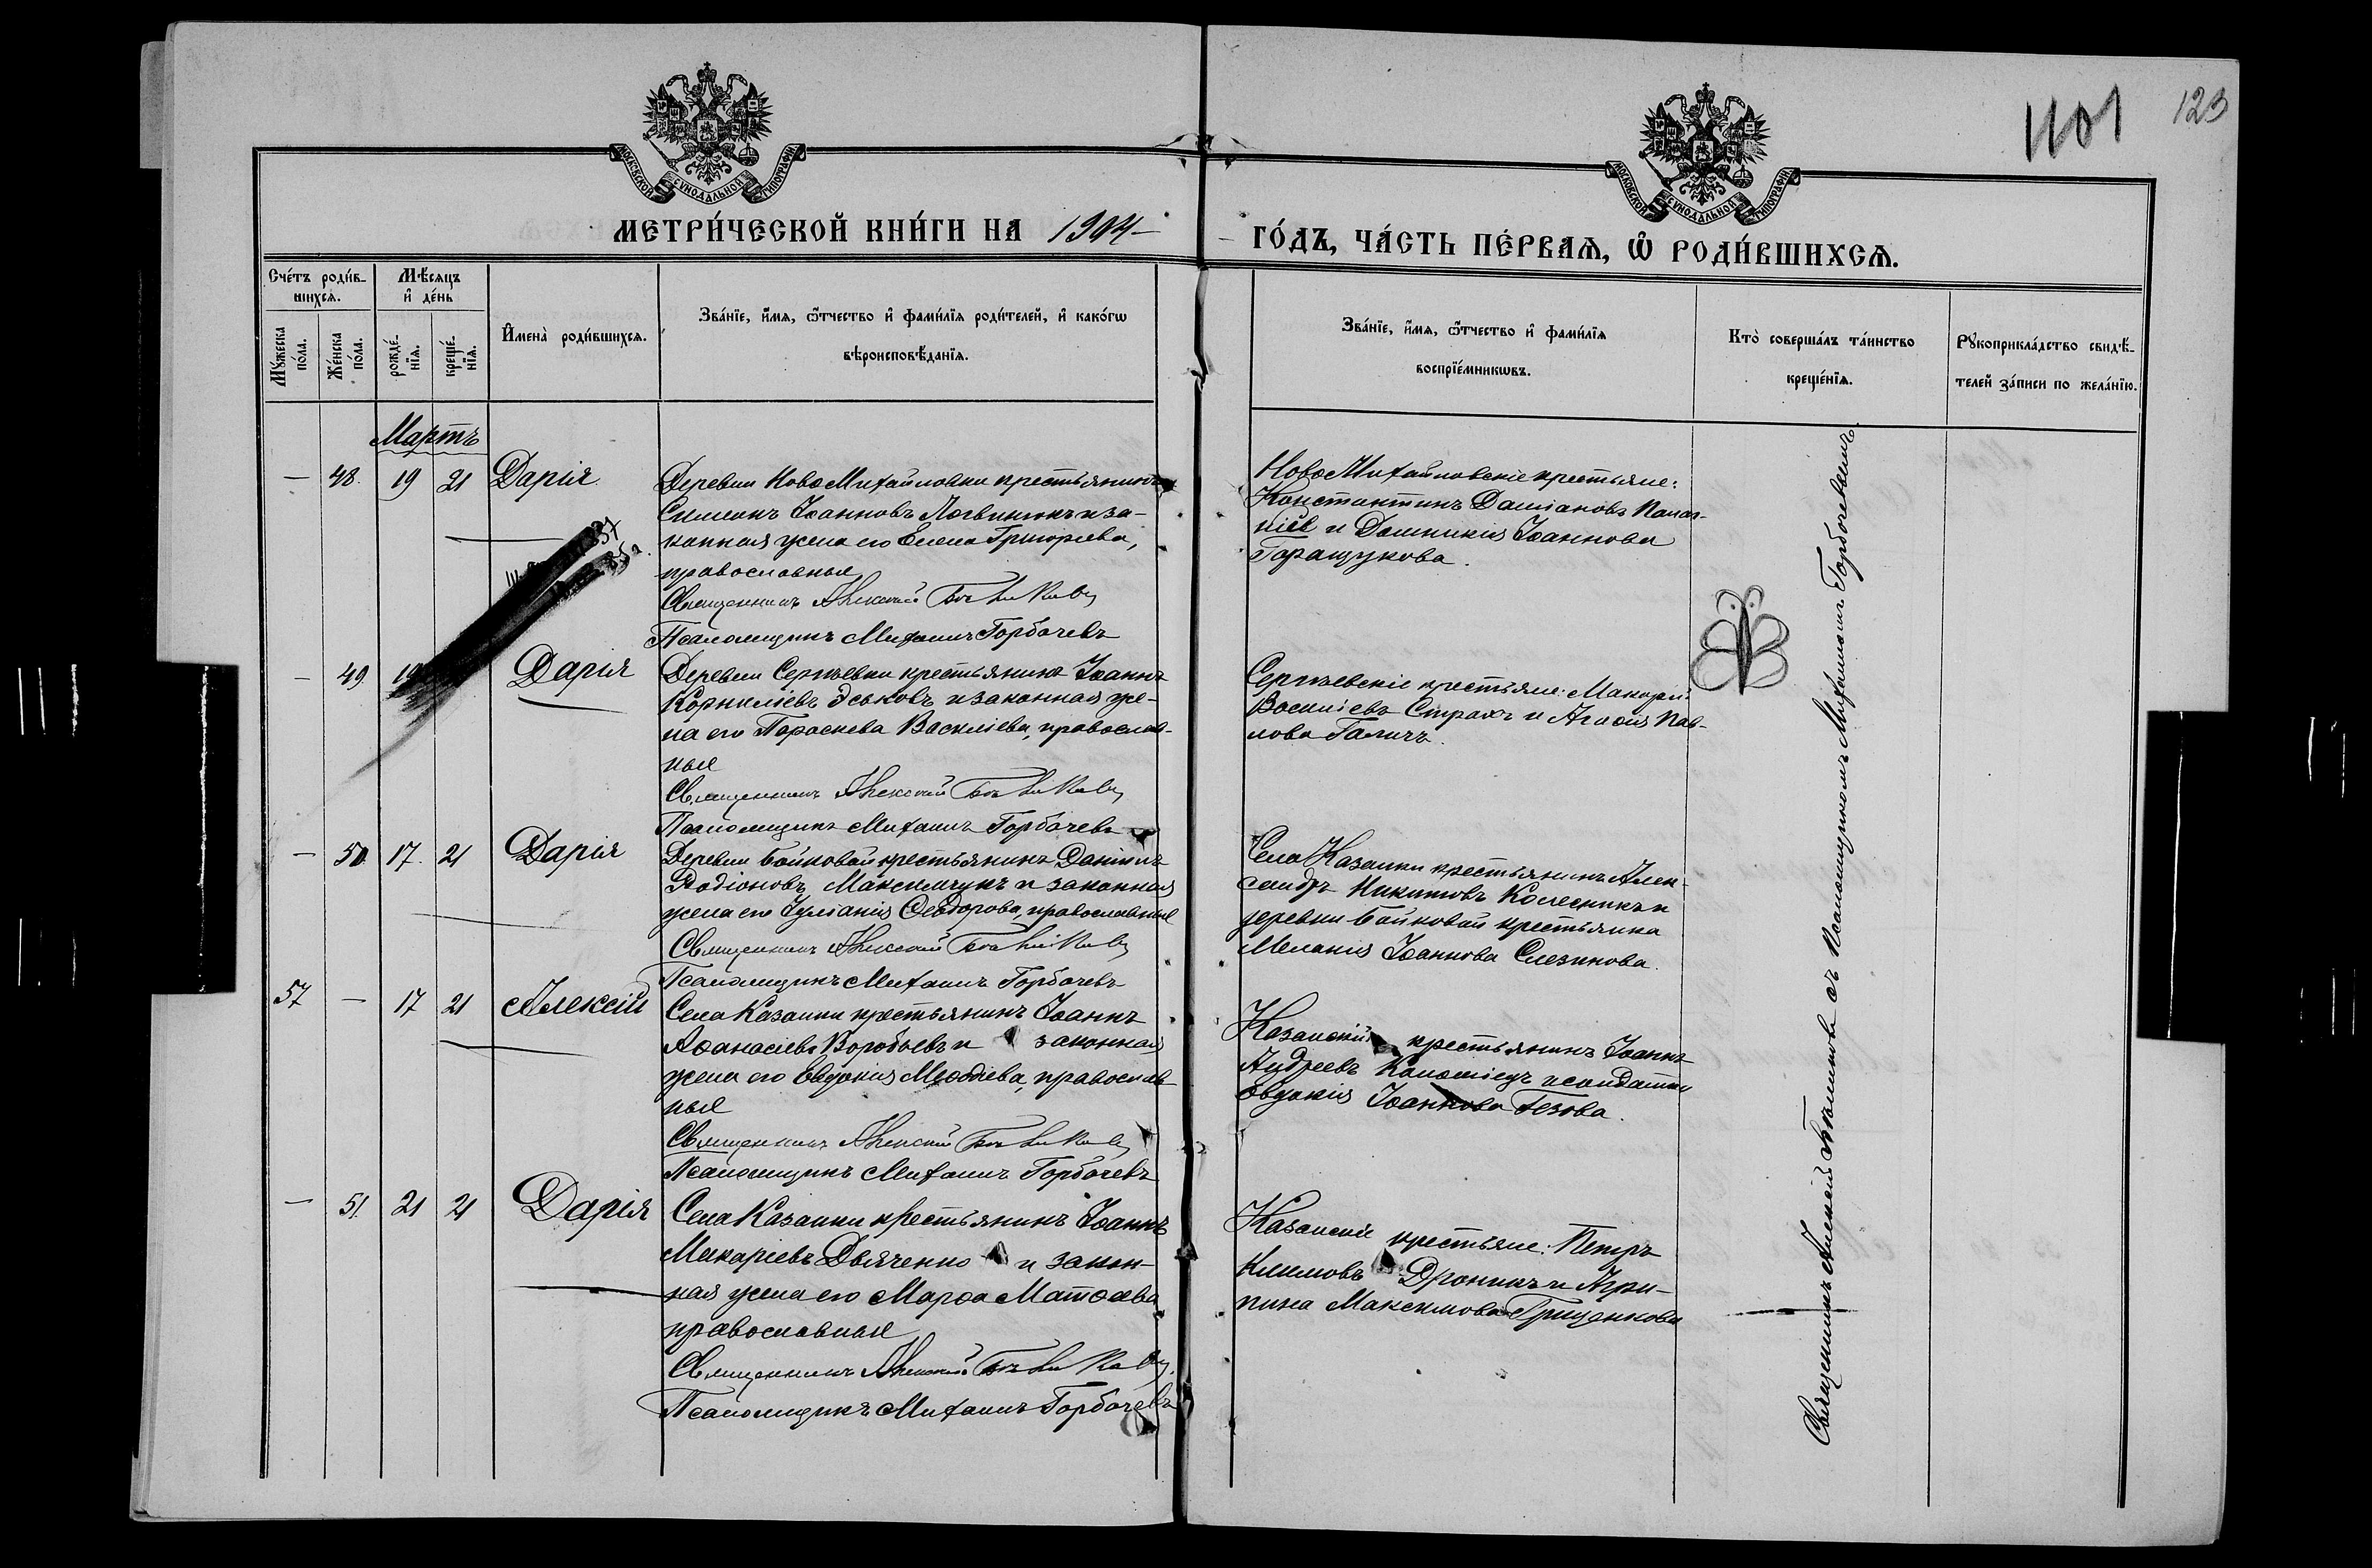 1101
123
МОСКОВСКОЙ СѴНОДАЛЬНОЙ ТИПОГРАФІИ
МОСКОВСКОЙ СѴНОДАЛЬНОЙ ТИПОГРАФІИ
МЕТРИ́ЧЕСКОЙ КНИ́ГИ НА 1904
ГО́ДЪ, ЧА́СТЬ ПЕ́РВАѦ, Ѡ҆ РОДИ́ВШИХСѦ.
Сче́тъ роди́в-
шихсѧ.
Мꙋжеска по́ла.
Же́нска по́ла.
Мѣ́сѧцъ
и҆ де́нь
рожде́-
нїѧ.
креще́-
нїѧ.
И҆мена̀ роди́вшихсѧ.
Зва́нїе, и҆́мѧ, ѻ҆́тчество и҆ фами́лїѧ роди́телей, и҆ како́гѡ
вѣроисповѣ́данїѧ.
Зва́нїе, и҆́мѧ, ѻ҆́тчество и҆ фами́лїѧ
воспрїе́мникѡвъ.
Кто̀ соверша́лъ та́инство
креще́нїѧ.
Рꙋкоприкла́дство свидѣ́-
телей за́писи по жела́нїю.
Мартъ
— 48. 19 21 Дарія
Деревни НовоМихайловки крестьянинъ
Симеонъ Іоанновъ Логвинюкъ и за-
конная жена его Елена Григоріева,
православные
Священникъ Алексій
Псаломщикъ Михаилъ Горбачевъ
НовоМихайловскіе крестьяне:
Константинъ Даміановъ
и Домникія Іоаннова
Таращукова.
— 49 19 Дарія
Деревни Сергѣевки крестьянинъ Іоаннъ
Корниліевъ Эськовъ и законная же-
на его Параскева Василіева, православ-
ные
Священникъ Алексій
Псаломщикъ Михаилъ Горбачевъ
Сергѣевскіе крестьяне: Макарій
Василіевъ Страхъ и Агаѳія Пав-
лова Галичъ.
— 50. 17. 21 Дарія
Деревни Бойковой крестьянинъ Даніилъ
Родіоновъ Максимчукъ и законная
жена его Іуліанія Ѳеодорова, православные
Священникъ Алексій
Псаломщикъ Михаилъ Горбачевъ
Села Казанки крестьянинъ Алек-
сандръ Никитовъ Колесникъ и
деревни Бойковой крестьянка
Меланія Іоаннова Слезинова.
57 — 17 21 Алексій
Села Казанки крестьянинъ Іоаннъ
Аѳанасіевъ Воробьевъ и законная
жена его Евдокія Меѳодіева, православ-
ные
Священникъ Алексій
Псаломщикъ Михаилъ Горбачевъ
Казанскій крестьянинъ Іоаннъ
Андреевъ Коломіецъ и солдатка
Евдокія Іоаннова Гезова.
— 51. 21 21 Дарія
Села Казанки крестьянинъ Іоаннъ
Макаріевъ Дьяченко и закон-
ная жена его Марѳа Матѳеева
православные
Священникъ Алексій
Псаломщикъ Михаилъ Горбачевъ
Казанскіе крестьяне: Петръ
Климовъ Дроникъ и Агри-
пина Максимова Грищенкова
Священникъ Алексій съ Псаломщикомъ Михаиломъ Горбачевымъ.